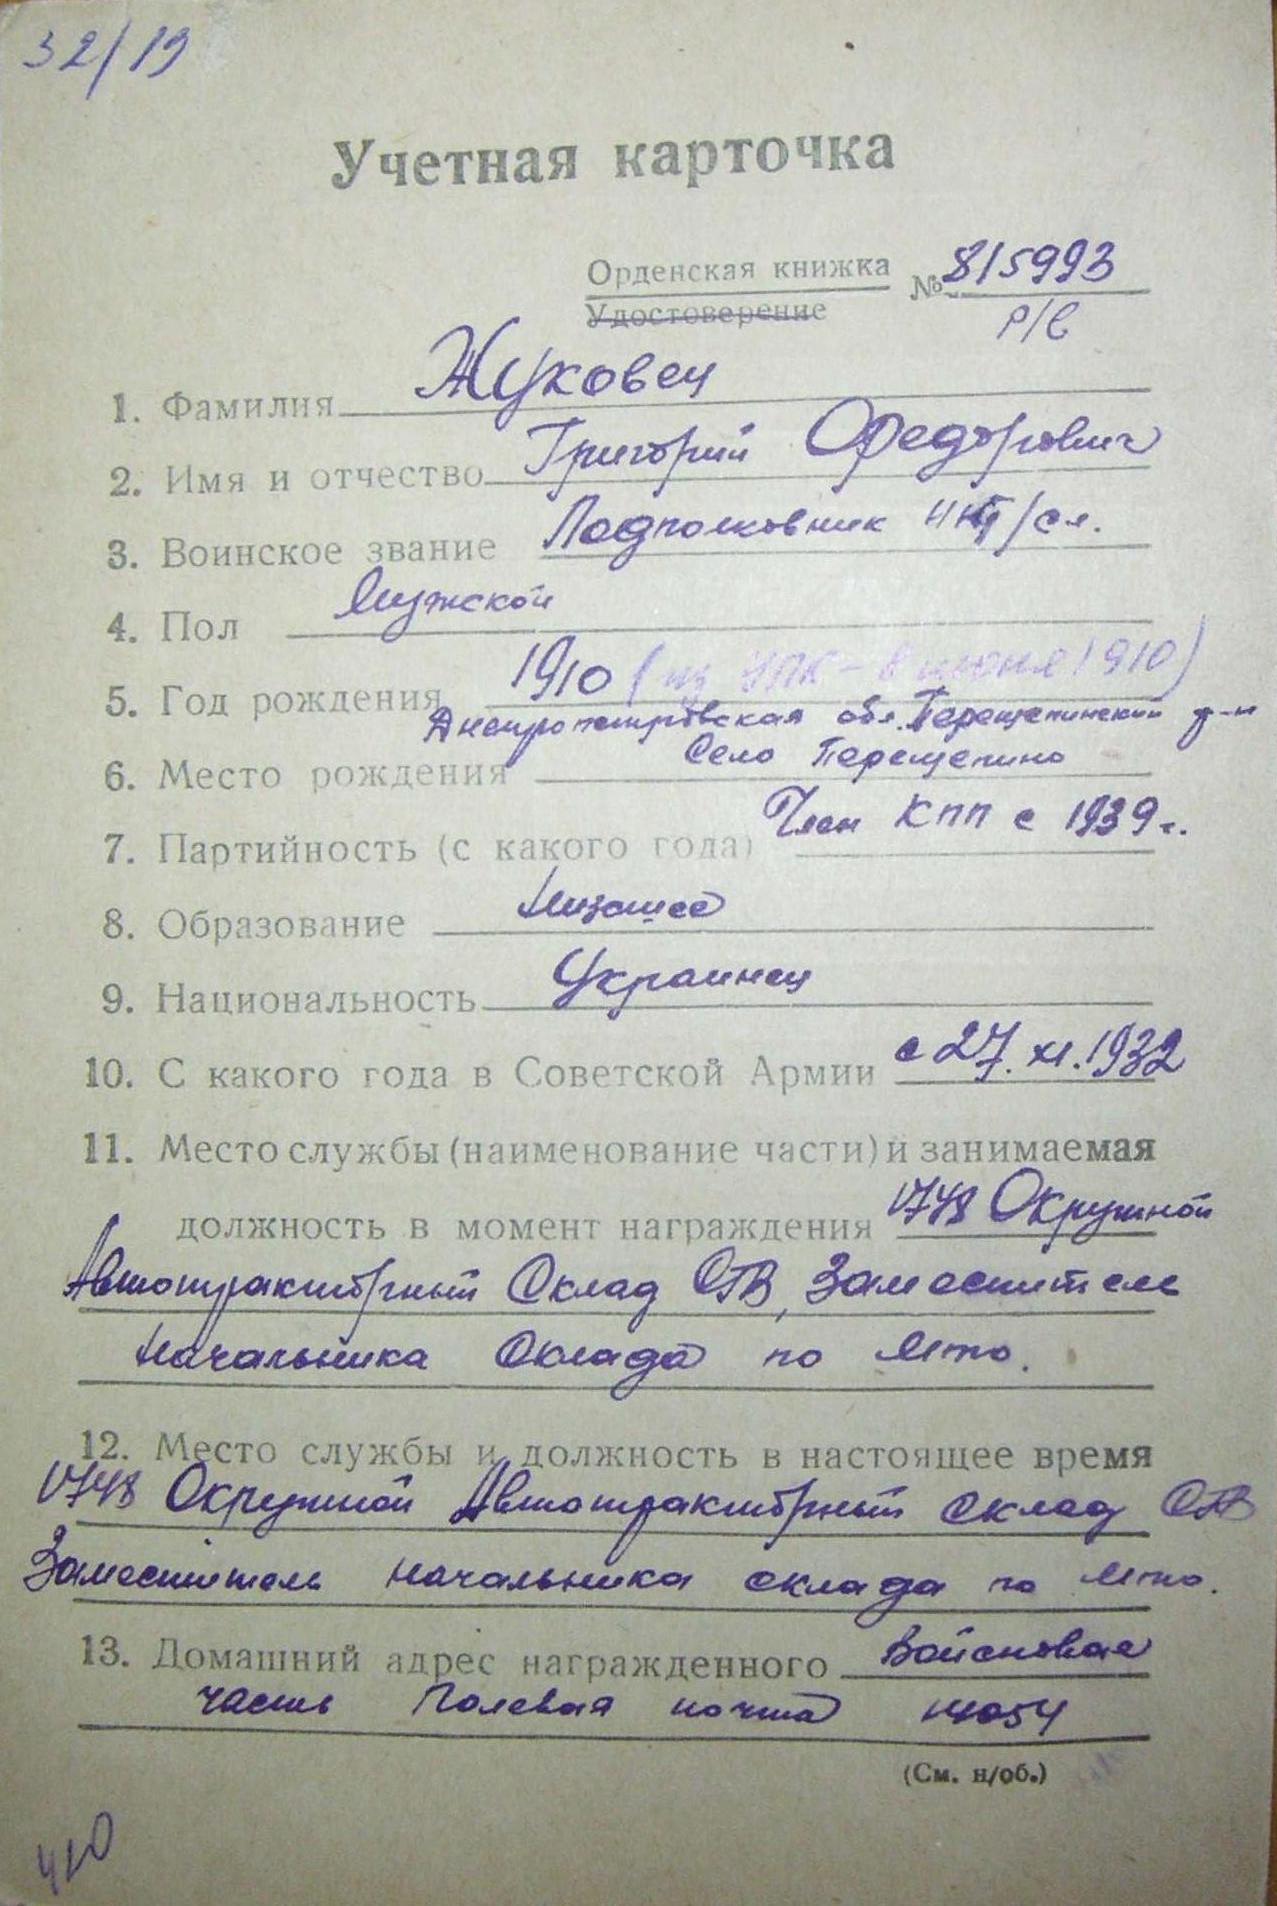 32/19
Учетная карточка
Орденская книжка № 815993
Удостоверение р/в
1. Фамилия Жуковец
2. Имя и отчество Григорий Федорович
3. Воинское звание Подполковник /сл.
4. Пол Мужской
5. Год рождения 1910 (из УПК - 8 июня 1910)
Днепропетровская обл. Перещепинский р-н
6. Место рождения Село Перещепино
7. Партийность (с какого года) Член КПП с 1939 г.
8. Образование Низшее
9. Национальность Украинец
10. С какого года в Советской Армии с 27.XI.1932
11. Место службы (наименование части) и занимаемая
должность в момент награждения 1748 Окружной
Автотракторный Склад СГВ, Заместитель
Начальника Склада по МТО.
12. Место службы и должность в настоящее время
1748 Окружной Автотракторный склад СГВ
Заместитель Начальника склада по МТО.
13. Домашний адрес награжденного Войсковая
часть Полевая почта 14054
(См. н/об.)
410